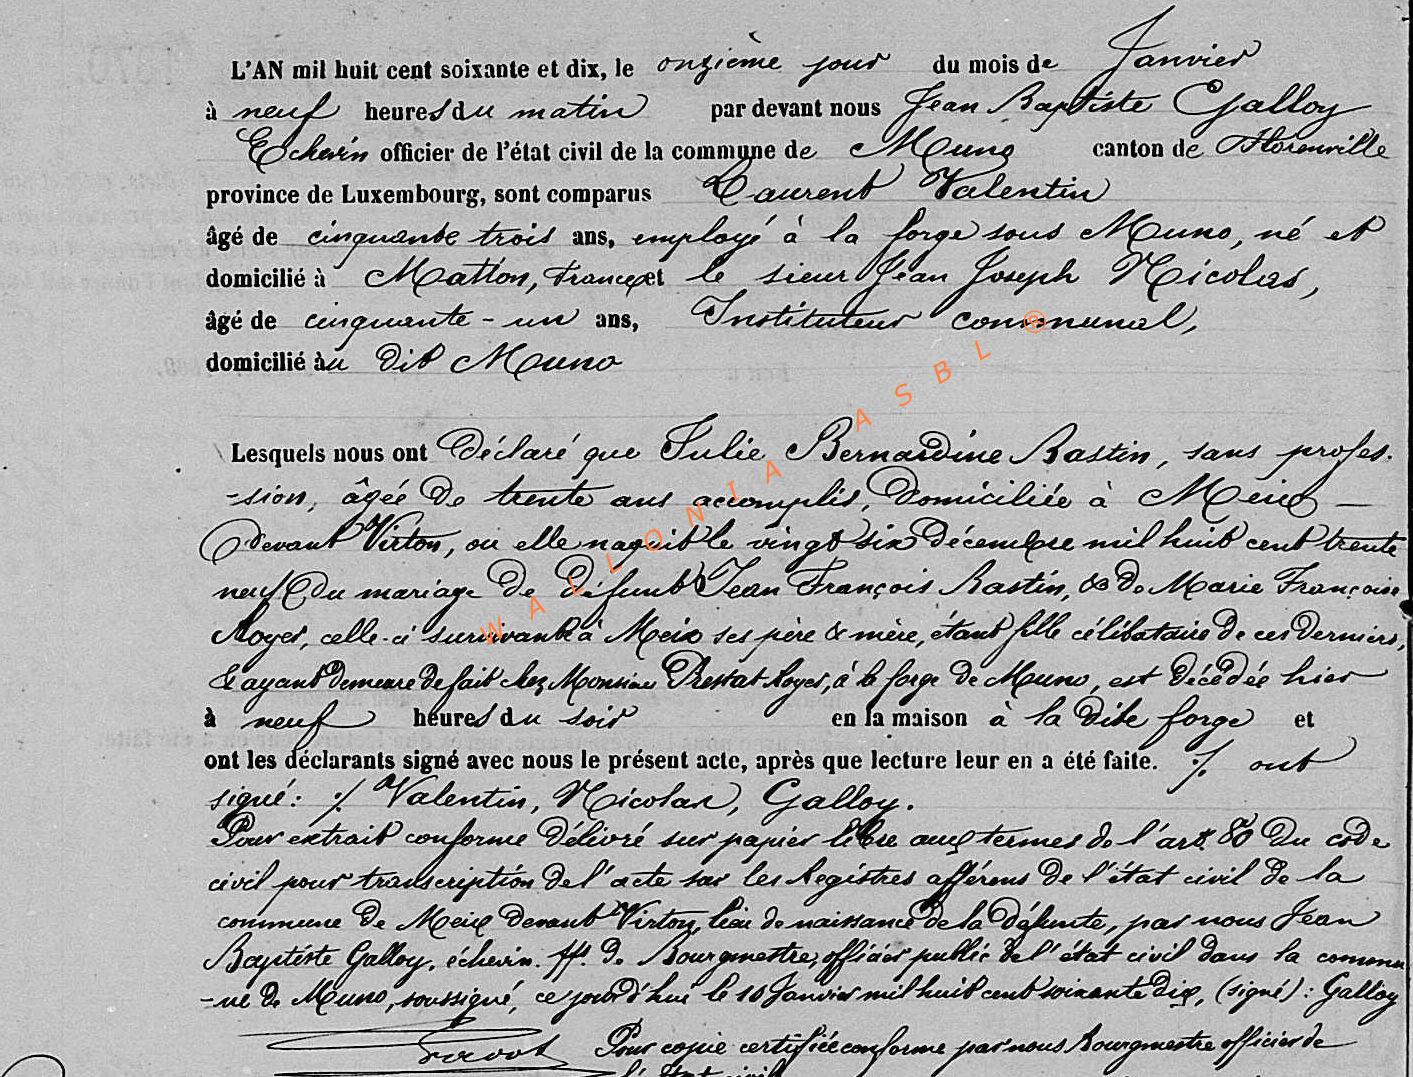 L'AN mil huit cent soixante et dix, le onzième jour du mois de Janvier
à neuf heures du matin par devant nous Jean Baptiste Galloy
Echevin officier de l'état civil de la commune de Muno canton de Florenville
province de Luxembourg, sont comparus Laurent Valentin
âgé de cinquante trois ans, employé à la forge sous Muno, né et
domicilié à Matton, France et le sieur Jean Joseph Nicolas,
âgé de cinquante-un ans, Instituteur communal,
domicilié àu dit Muno
Lesquels nous ont déclaré que Julie Bernardine Rastin, sans profes-
-sion, âgée de trente ans accomplis, domiciliée à Meix
devant Virton, ou elle naquit le vingt six décembre mil huit cent trente
neuf du mariage de défunt Jean François Rastin, & de Marie Françoise
Royer, celle-ci survivante à Meix ses père & mère, étant fille célibataire de ces derniers,
& ayant demeure de fait chez Monsieur Prestat Royer, à la forge de Muno, est décédée hier
à neuf heures du soir en la maison à la dite forge et
ont les déclarants signé avec nous le présent acte, après que lecture leur en a été faite. ./. ont
signé: ./. Valentin, Nicolas, Galloy.
Pour extrait conforme délivré sur papier libre aux termes de l'art 80 du code
civil pour transcription de l'acte sur les Registres afférens de l'état civil de la
commune de Meix devant Virton, lieu de naissance de la défunte, par nous Jean
Baptiste Galloy, échevin ff. de Bourgmestre, officier public de l'état civil dans la commu
-ne de Muno, soussigné, ce jourd'hui le 10 Janvier mil huit cent soixante dix, (signé): Galloy
Pour copie certifiée conforme par nous Bourgmestre officier de
l'état civil
WALLONIA ASBL ®